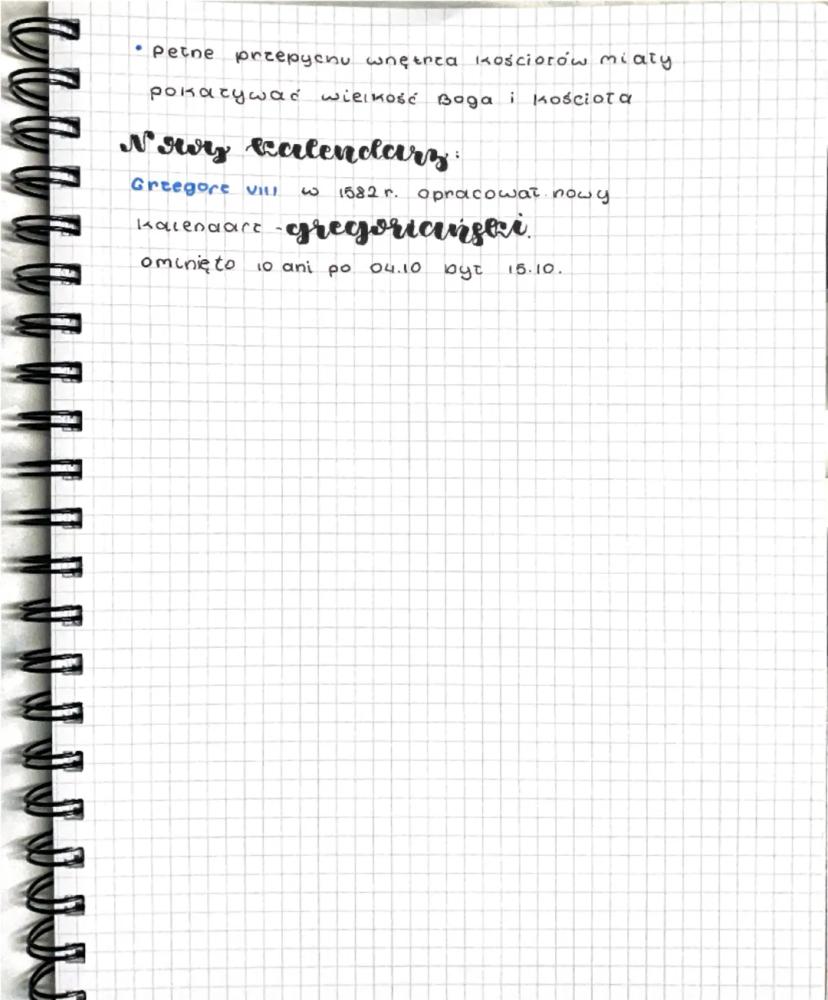 • pełne przepychu wnętrza kościołów miały
pokazywać wielkość Boga i kościoła
Nowy kalendarz:
Grzegorz VIII w 1582 r. opracował nowy
kalendarz - gregoriański.
ominięto 10 dni po 04.10 był 15.10.